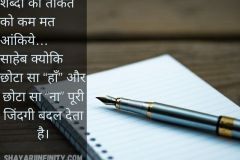 शब्दों की ताकत
को कम मत
आंकिये...
साहेब क्योकि
छोटा सा “हाँ” और
छोटा सा “ना” पूरी
जिंदगी बदल देता
है।
SHAYARIINFINITY.COM